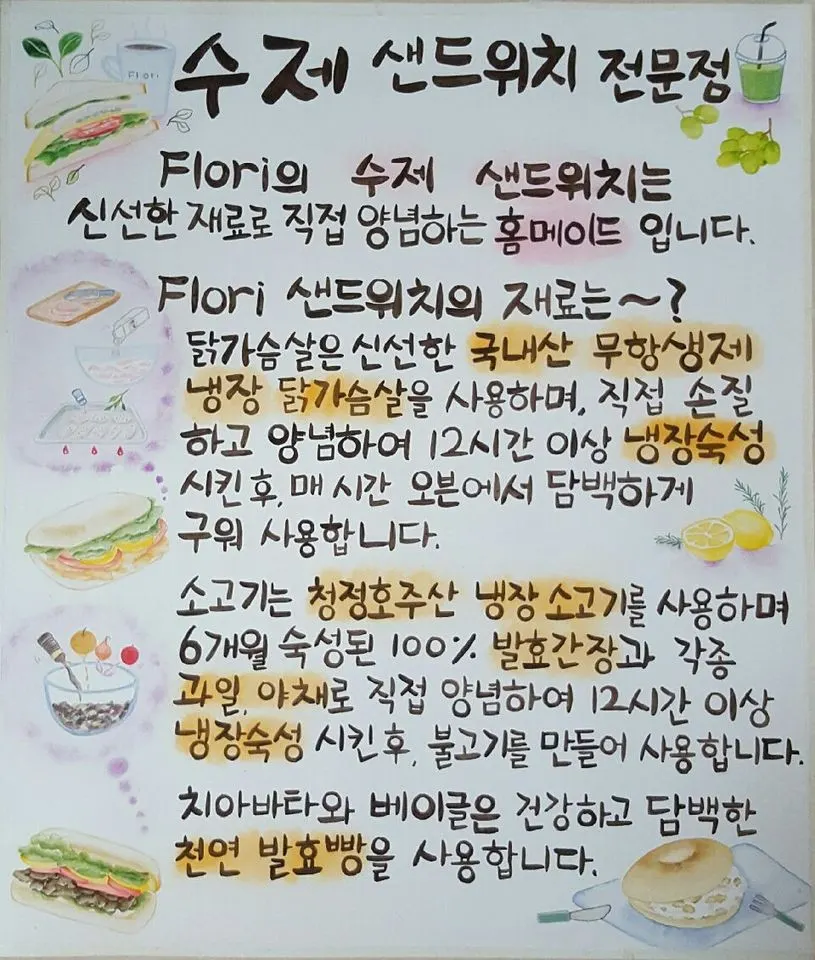 Flori
수제 샌드위치 전문점
Flori의 수제 샌드위치는
신선한 재료로 직접 양념하는 홈메이드 입니다.
Flori 샌드위치의 재료는~?
닭가슴살은 신선한 국내산 무항생제
냉장 닭가슴살을 사용하며, 직접 손질
하고 양념하여 12시간 이상 냉장숙성
시킨후, 매 시간 오븐에서 담백하게
구워 사용합니다.
소고기는 청정호주산 냉장 소고기를 사용하며
6개월 숙성된 100% 발효간장과 각종
과일, 야채로 직접 양념하여 12시간 이상
냉장숙성 시킨후, 불고기를 만들어 사용합니다.
치아바타와 베이글은 건강하고 담백한
천연 발효빵을 사용합니다.